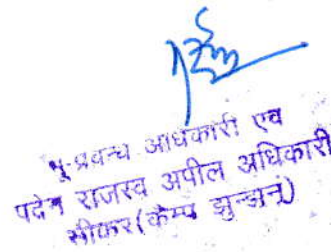 भू-प्रबन्ध आधकारी एव
पदेन राजस्व अपील अधिकारी
सीकर (कैम्प झुन्झनूं)